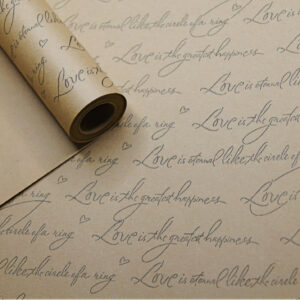 like the circle of a
Love is the greatest happiness.
ring
Love is
Love is eternal like the
greatest happiness.
circle of a ring Love is the greatest
Love is eternal like the circle of
ring Love is the greatest happiness. Love
circle of a ring Love is the greatest happiness.
like the circle of a ring Love is eternal like the